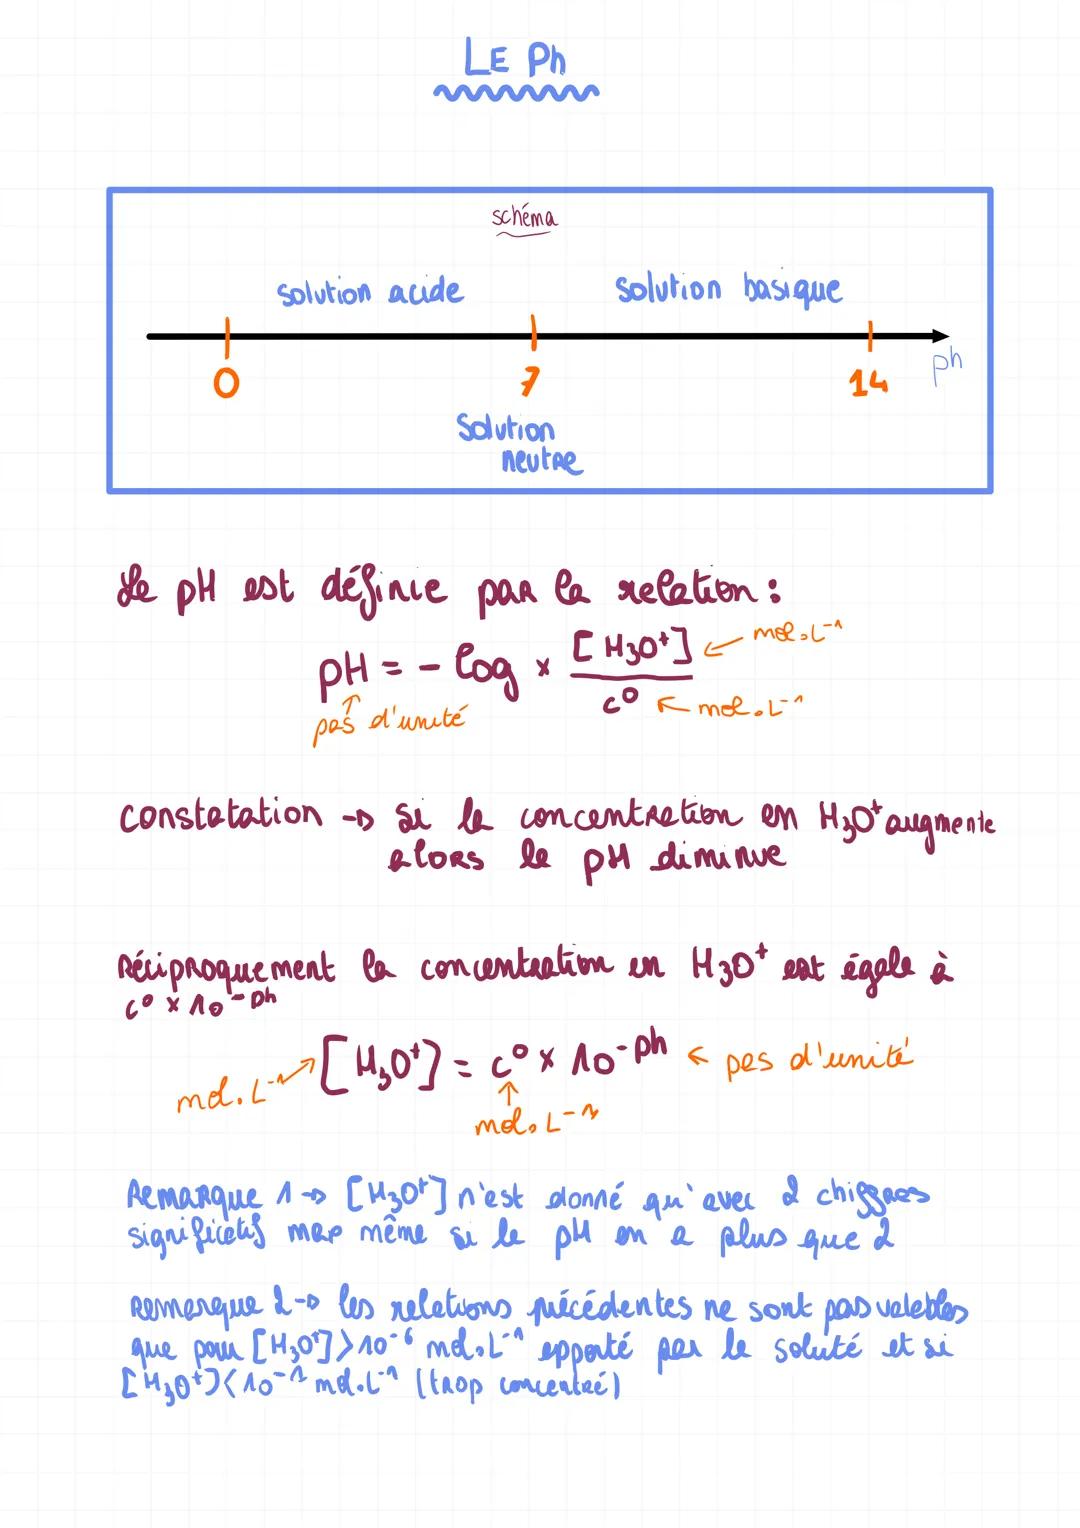 LE Ph
schéma
solution acide solution basique
0 7 14 ph
Solution
neutre
Le pH est définie par la relation :
pH = - log × [H₃O⁺] / c⁰
mol.L⁻¹
mol.L⁻¹
pas d'unité
constatation → si la concentration en H₃O⁺ augmente
alors le pH diminue
Réciproquement la concentration en H₃O⁺ est égale à
c⁰ × 10⁻ᵖʰ
[H₃O⁺] = c⁰ × 10⁻ᵖʰ ← pas d'unité
mol.L⁻¹
mol.L⁻¹
Remarque 1 → [H₃O⁺] n'est donné qu'avec 2 chiffres
significatifs max même si le pH en a plus que 2
remarque 2 → les relations précédentes ne sont pas valables
que pour [H₃O⁺] > 10⁻⁶ mol.L⁻¹ apporté par le soluté et si
[H₃O⁺] < 10⁻¹ mol.L⁻¹ (trop concentré)